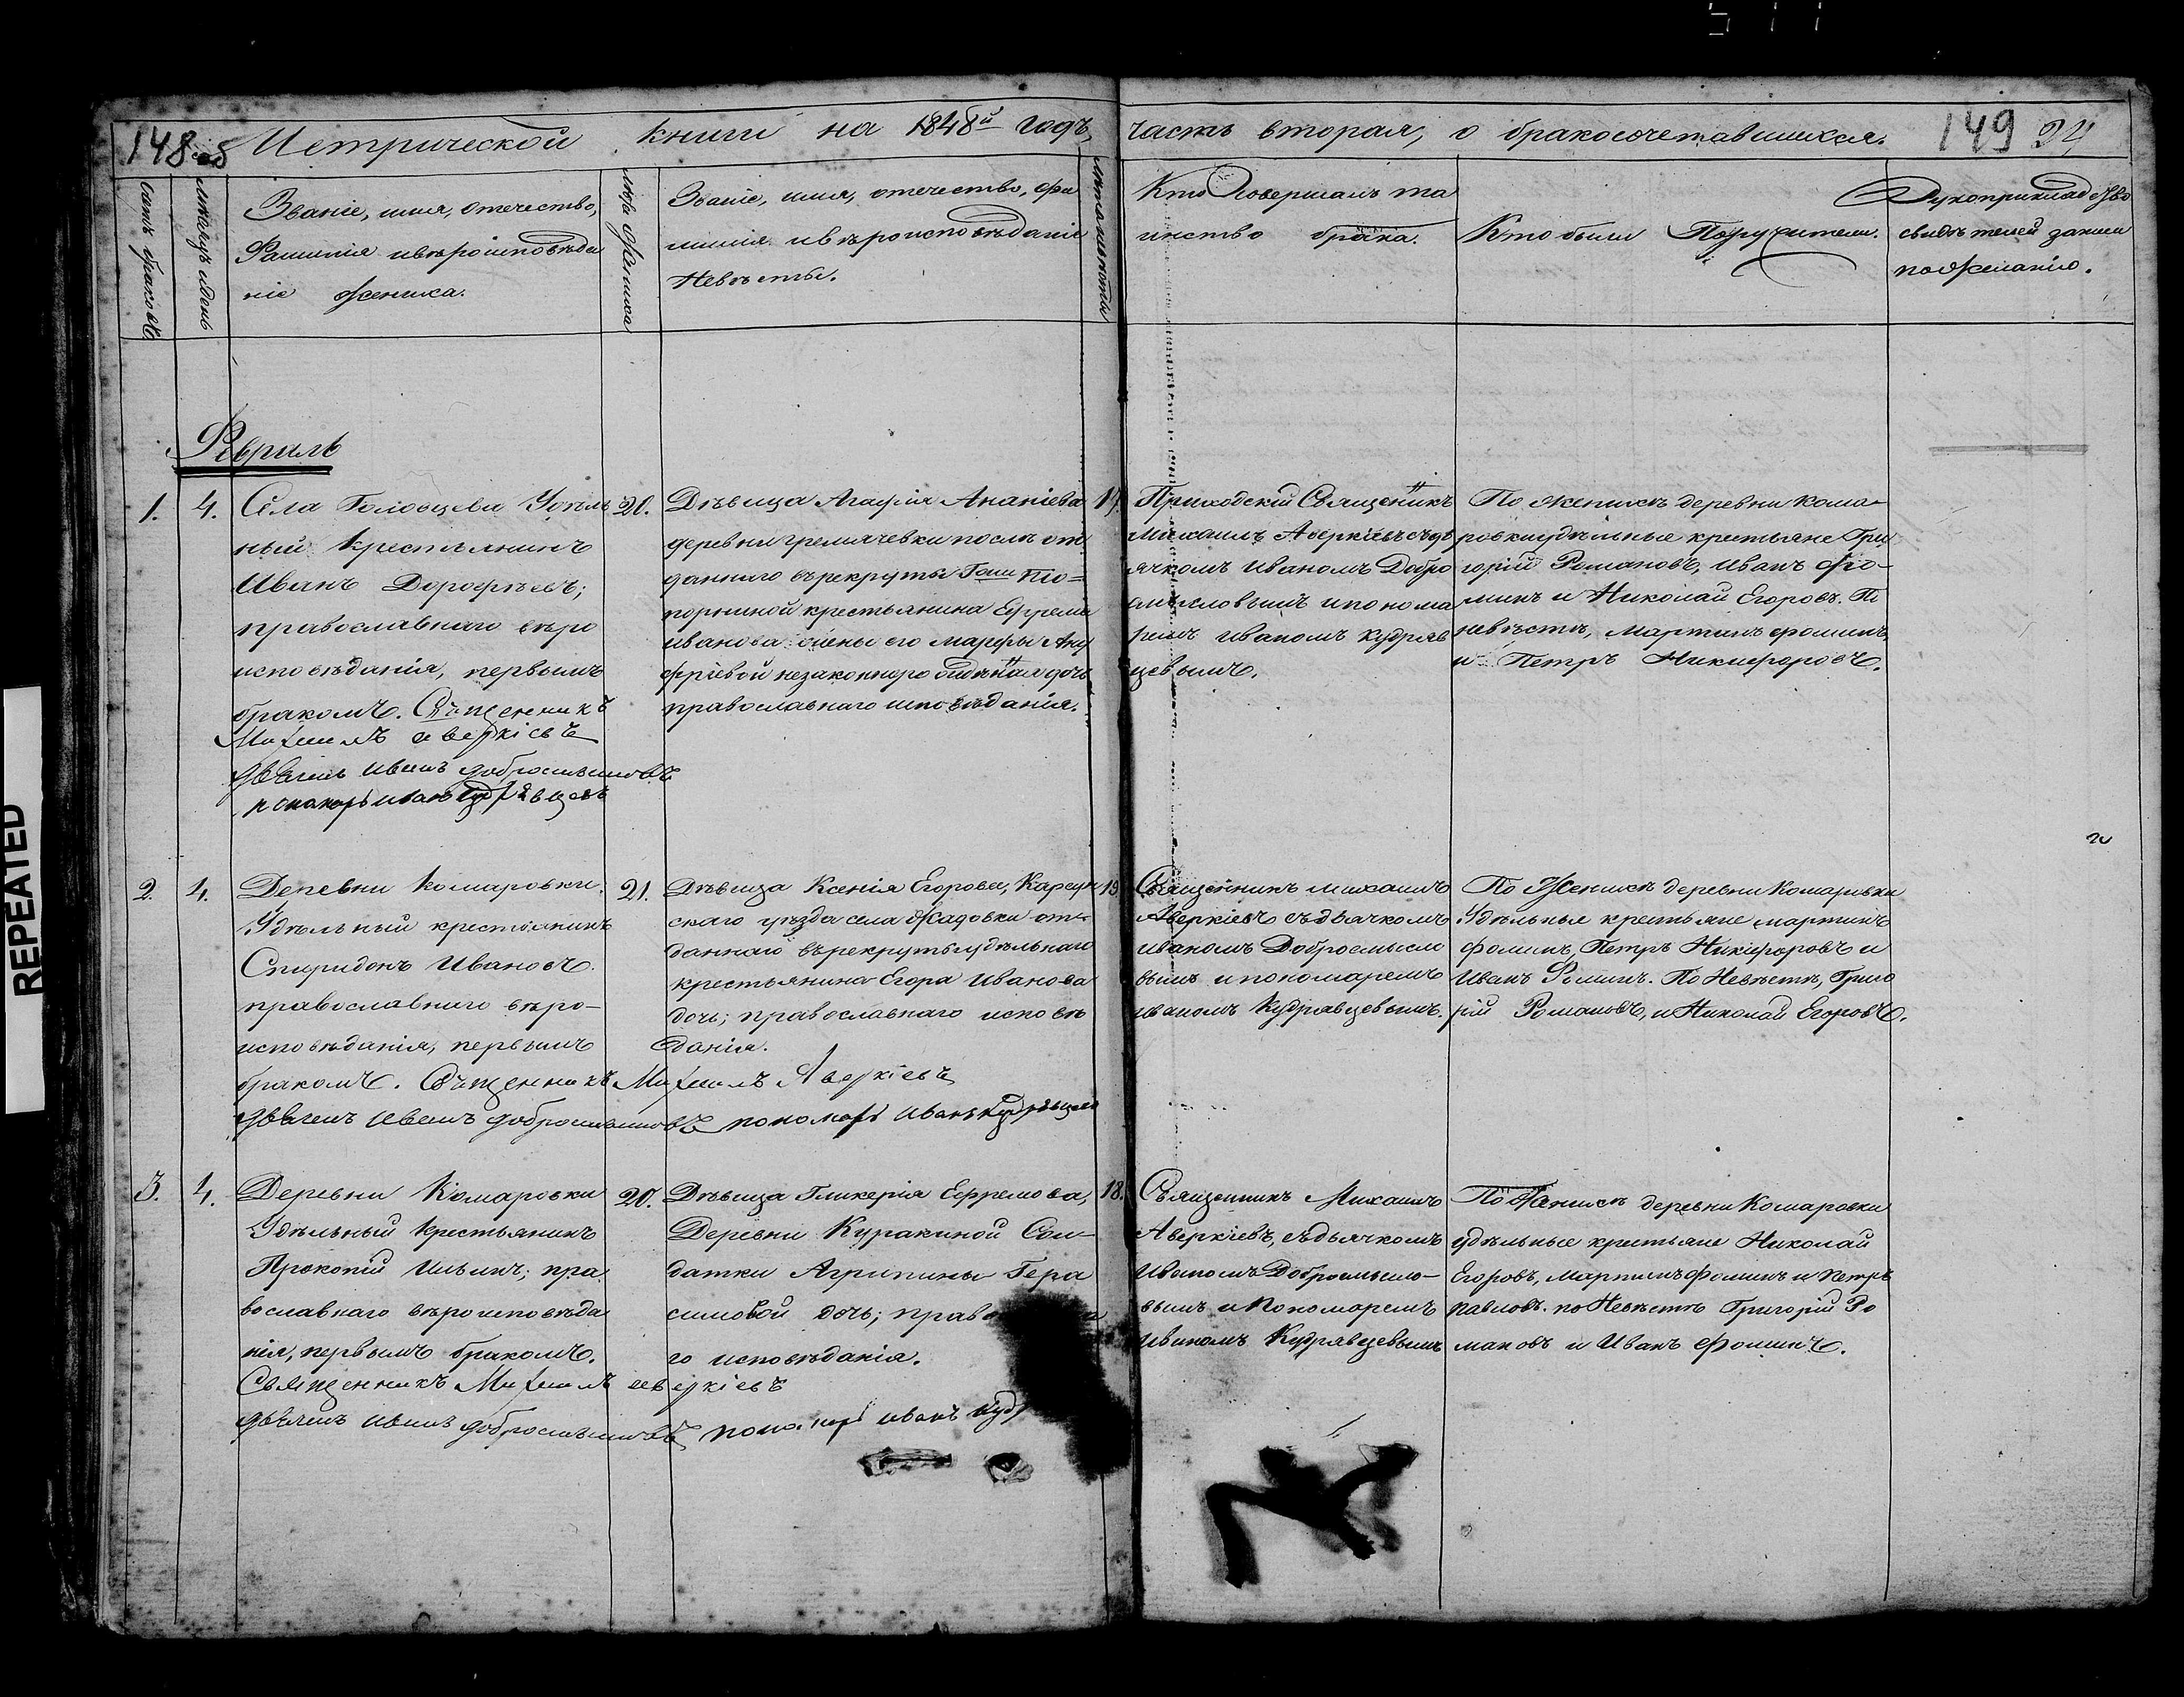 511
148 Метрической книги на 1848й годъ часть вторая, о бракосочетавшихся. 149 24
Счетъ браковъ
Мѣсяцъ и день
Званіе, имя, отечество,
Фамилія и вѣроисповѣда
ніе Жениха.
Лѣта Жениха
Званіе, имя, отечество, фа
милія и вѣроисповѣданіе
Невѣсты.
Лѣта невѣсты
Кто Совершалъ та
инство брака.
Кто были Поручители.
Рукоприкладство
свидѣтелей записи
по Желанію.
Февраль
1. 4.
Села Головцева Удѣль
ный крестьянинъ
Иванъ Дорофѣевъ;
православнаго вѣро
исповѣданія, первымъ
бракомъ. Священникъ
Михаилъ Аверкіевъ
дьячекъ Иванъ Добросмысловъ
пономарь Иванъ Кудрявцевъ
20.
Дѣвица Агафія Ананіева
деревни Гремячевки послѣ от
даннаго въ рекруты
крестьянина Ефрема
Иванова жены его Марфы Ану
фріевой незаконнорожденная дочь
православнаго исповѣданія.
Приходскій Священникъ
Михаилъ Аверкіевъ съ дь
ячкомъ Иваномъ Добро
смысловымъ и понома
ремъ Иваномъ Кудряв
цевымъ.
По женихѣ деревни Кома
ровки удѣльные крестьяне Гри
горій Романовъ, Иванъ Фо-
минъ и Николай Егоровъ. По
невѣстѣ, Мартинъ Фоминъ
и Петръ Никифоровъ.
2. 4.
Деревни Комаровки
Удѣльный крестьянинъ
Спиридонъ Ивановъ.
православнаго вѣро-
исповѣданія, первымъ
бракомъ. Священникъ Михаилъ Аверкіевъ
дьячекъ Иванъ Добросмысловъ пономарь Иванъ Кудрявцевъ
21.
Дѣвица Ксенія Егорова, Карсун
скаго уѣзда села Жадовки от-
даннаго въ рекруты удѣльнаго
крестьянина Егора Иванова
дочь; православнаго исповѣ
данія.
19.
Священникъ Михаилъ
Аверкіевъ съ дьячкомъ
Иваномъ Добросмысло
вымъ и пономаремъ
Иваномъ Кудрявцевымъ.
По Женихѣ деревни Комаровки
Удѣльные крестьяне Мартинъ
Фоминъ, Петръ Никифоровъ и
Иванъ Фоминъ. По Невѣстѣ, Григо
рій Романовъ, и Николай Егоровъ.
3. 4.
Деревни Комаровки
Удѣльный крестьянинъ
Прокопій Ильинъ; пра
вославнаго вѣроисповѣда
нія, первымъ бракомъ.
Священникъ Михаилъ Аверкіевъ
дьячекъ Иванъ Добросмысловъ пономарь Иванъ
20.
Дѣвица Гликерія Ефремова,
Деревни Куракиной Сол-
датки Агрипины Гера
симовой дочь;
го исповѣданія.
18.
Священникъ Михаилъ
Аверкіевъ, съ дьячкомъ
Иваномъ Добросмысло-
вымъ и Пономаремъ
Иваномъ Кудрявцевымъ
По Женихѣ деревни Комаровки
удѣльные крестьяне Николай
Егоровъ, Мартинъ Фоминъ и Петръ
Павловъ. по Невѣстѣ Григорій Ро
мановъ и Иванъ Фоминъ.
REPEATED